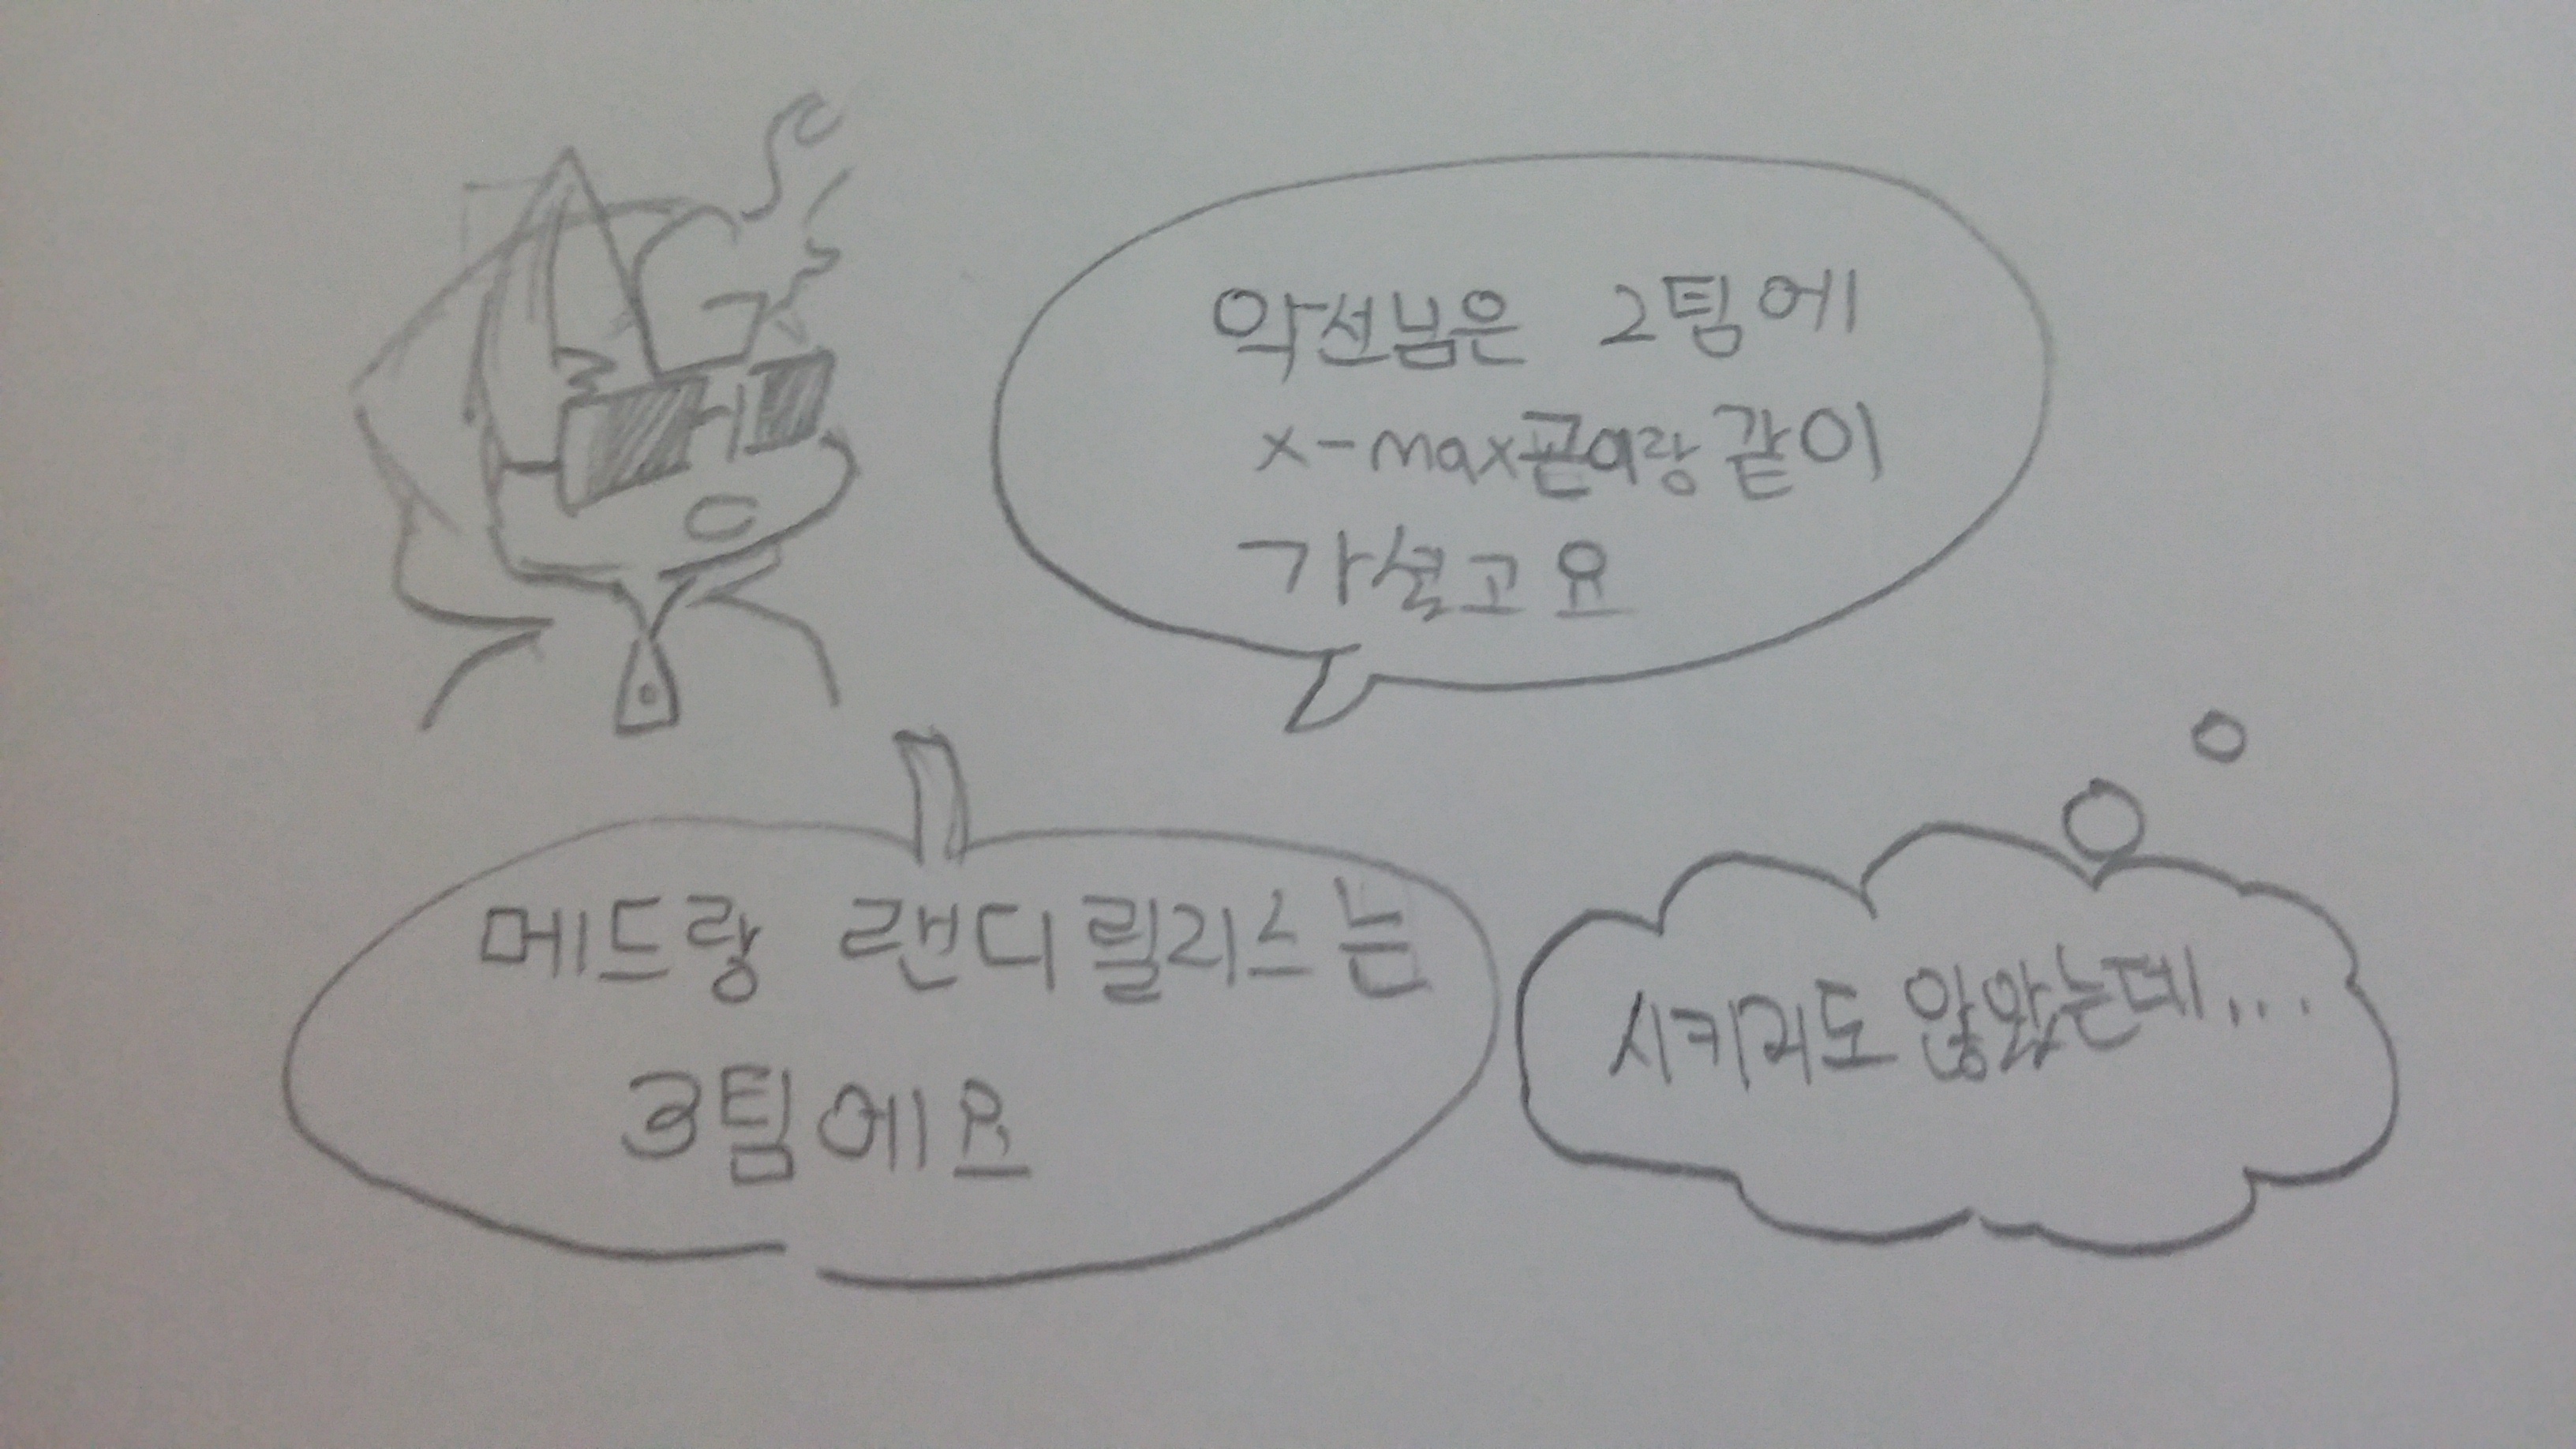 악선님은 2팀에
x-max곧이랑 같이
가실고요
메드랑 랜디 릴리스는
3팀에요
시키지도 않았는데...